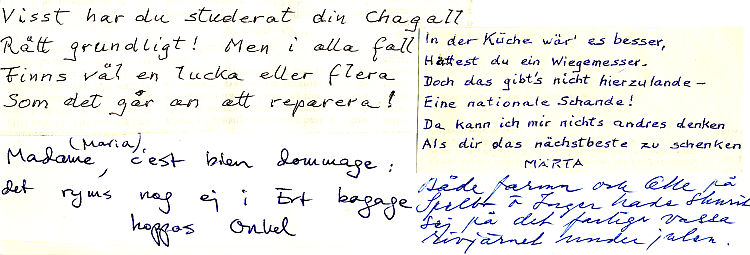 Visst har du studerat din Chagall
Rätt grundligt! Men i alla fall
Finns väl en lucka eller flera
Som det går an att reparera!
(Maria)
Madame, c'est bien dommage:
det ryms nog ej i Ert bagage
hoppas Onkel
In der Küche wär' es besser,
Hättest du ein Wiegemesser.
Doch das gibt's nicht hierzulande –
Eine nationale Schande!
Da kann ich mir nichts andres denken
Als dir das nächstbeste zu schenken
MÄRTA
Både farmor och Olle på
Inger hade skurit
sej på det fortige vassa
rivjärnet under julen.